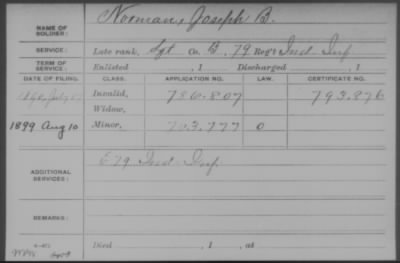 NAME OF SOLDIER: Norman, Joseph B.
SERVICE: Late rank, Sgt Co. B, 79 Reg't Ind. Inf.
TERM OF SERVICE: Enlisted , 1 Discharged , 1
DATE OF FILING. CLASS. APPLICATION NO. LAW. CERTIFICATE NO.
Invalid, 793.876
Widow,
1899 Aug 10 Minor, 703.777 0
ADDITIONAL SERVICES: E 79 Ind Inf.
REMARKS:
Died , 1 , at